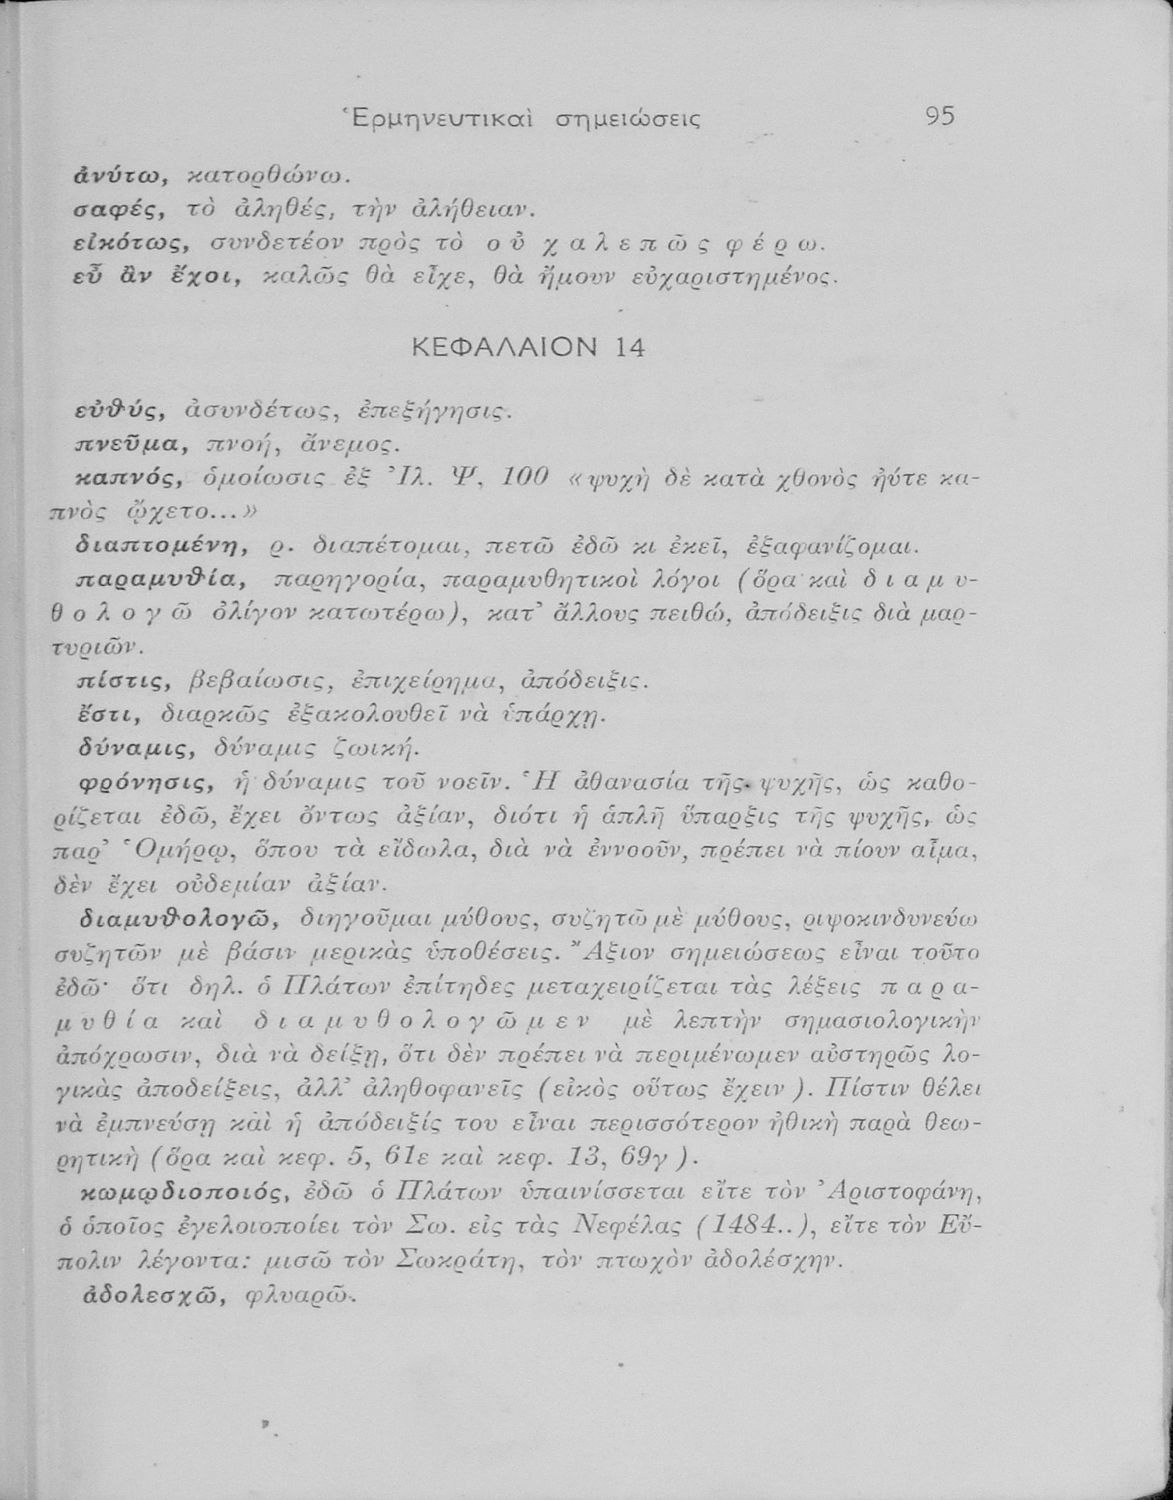 Ἑρμηνευτικαὶ σημειώσεις 95
ἀνύτω, κατορθώνω.
σαφές, τὸ ἀληθές, τὴν ἀλήθειαν.
εἰκότως, συνδετέον πρὸς τὸ οὐ χαλεπῶς φέρω.
εὖ ἂν ἔχοι, καλῶς θὰ εἶχε, θὰ ἤμουν εὐχαριστημένος.
ΚΕΦΑΛΑΙΟΝ 14
εὐθύς, ἀσυνδέτως, ἐπεξήγησις.
πνεῦμα, πνοή, ἄνεμος.
καπνός, ὁμοίωσις ἐξ Ἰλ. Ψ, 100 «ψυχὴ δὲ κατὰ χθονὸς ἠύτε κα-
πνὸς ᾤχετο...»
διαπτομένη, ρ. διαπέτομαι, πετῶ ἐδῶ κι ἐκεῖ, ἐξαφανίζομαι.
παραμυθία, παρηγορία, παραμυθητικοὶ λόγοι (ὅρα καὶ διαμυ-
θολογῶ ὀλίγον κατωτέρω), κατ᾽ ἄλλους πειθώ, ἀπόδειξις διὰ μαρ-
τυριῶν.
πίστις, βεβαίωσις, ἐπιχείρημα, ἀπόδειξις.
ἔστι, διαρκῶς ἐξακολουθεῖ νὰ ὑπάρχῃ.
δύναμις, δύναμις ζωική.
φρόνησις, ἡ δύναμις τοῦ νοεῖν. Ἡ ἀθανασία τῆς ψυχῆς, ὡς καθο-
ρίζεται ἐδῶ, ἔχει ὄντως ἀξίαν, διότι ἡ ἁπλῆ ὕπαρξις τῆς ψυχῆς, ὡς
παρ᾽ Ὁμήρῳ, ὅπου τὰ εἴδωλα, διὰ νὰ ἐννοοῦν, πρέπει νὰ πίουν αἷμα,
δὲν ἔχει οὐδεμίαν ἀξίαν.
διαμυθολογῶ, διηγοῦμαι μύθους, συζητῶ μὲ μύθους, ριψοκινδυνεύω
συζητῶν μὲ βάσιν μερικὰς ὑποθέσεις. Ἄξιον σημειώσεως εἶναι τοῦτο
ἐδῶ· ὅτι δηλ. ὁ Πλάτων ἐπίτηδες μεταχειρίζεται τὰς λέξεις παρα-
μυθία καὶ διαμυθολογῶμεν μὲ λεπτὴν σημασιολογικὴν
ἀπόχρωσιν, διὰ νὰ δείξῃ, ὅτι δὲν πρέπει νὰ περιμένωμεν αὐστηρῶς λο-
γικὰς ἀποδείξεις, ἀλλ᾽ ἀληθοφανεῖς (εἰκὸς οὕτως ἔχειν). Πίστιν θέλει
νὰ ἐμπνεύσῃ καὶ ἡ ἀπόδειξίς του εἶναι περισσότερον ἠθικὴ παρὰ θεω-
ρητικὴ (ὅρα καὶ κεφ. 5, 61ε καὶ κεφ. 13, 69γ).
κωμῳδιοποιός, ἐδῶ ὁ Πλάτων ὑπαινίσσεται εἴτε τὸν Ἀριστοφάνη,
ὁ ὁποῖος ἐγελοιοποίει τὸν Σω. εἰς τὰς Νεφέλας (1484..), εἴτε τὸν Εὔ-
πολιν λέγοντα: μισῶ τὸν Σωκράτη, τὸν πτωχὸν ἀδολέσχην.
ἀδολεσχῶ, φλυαρῶ.